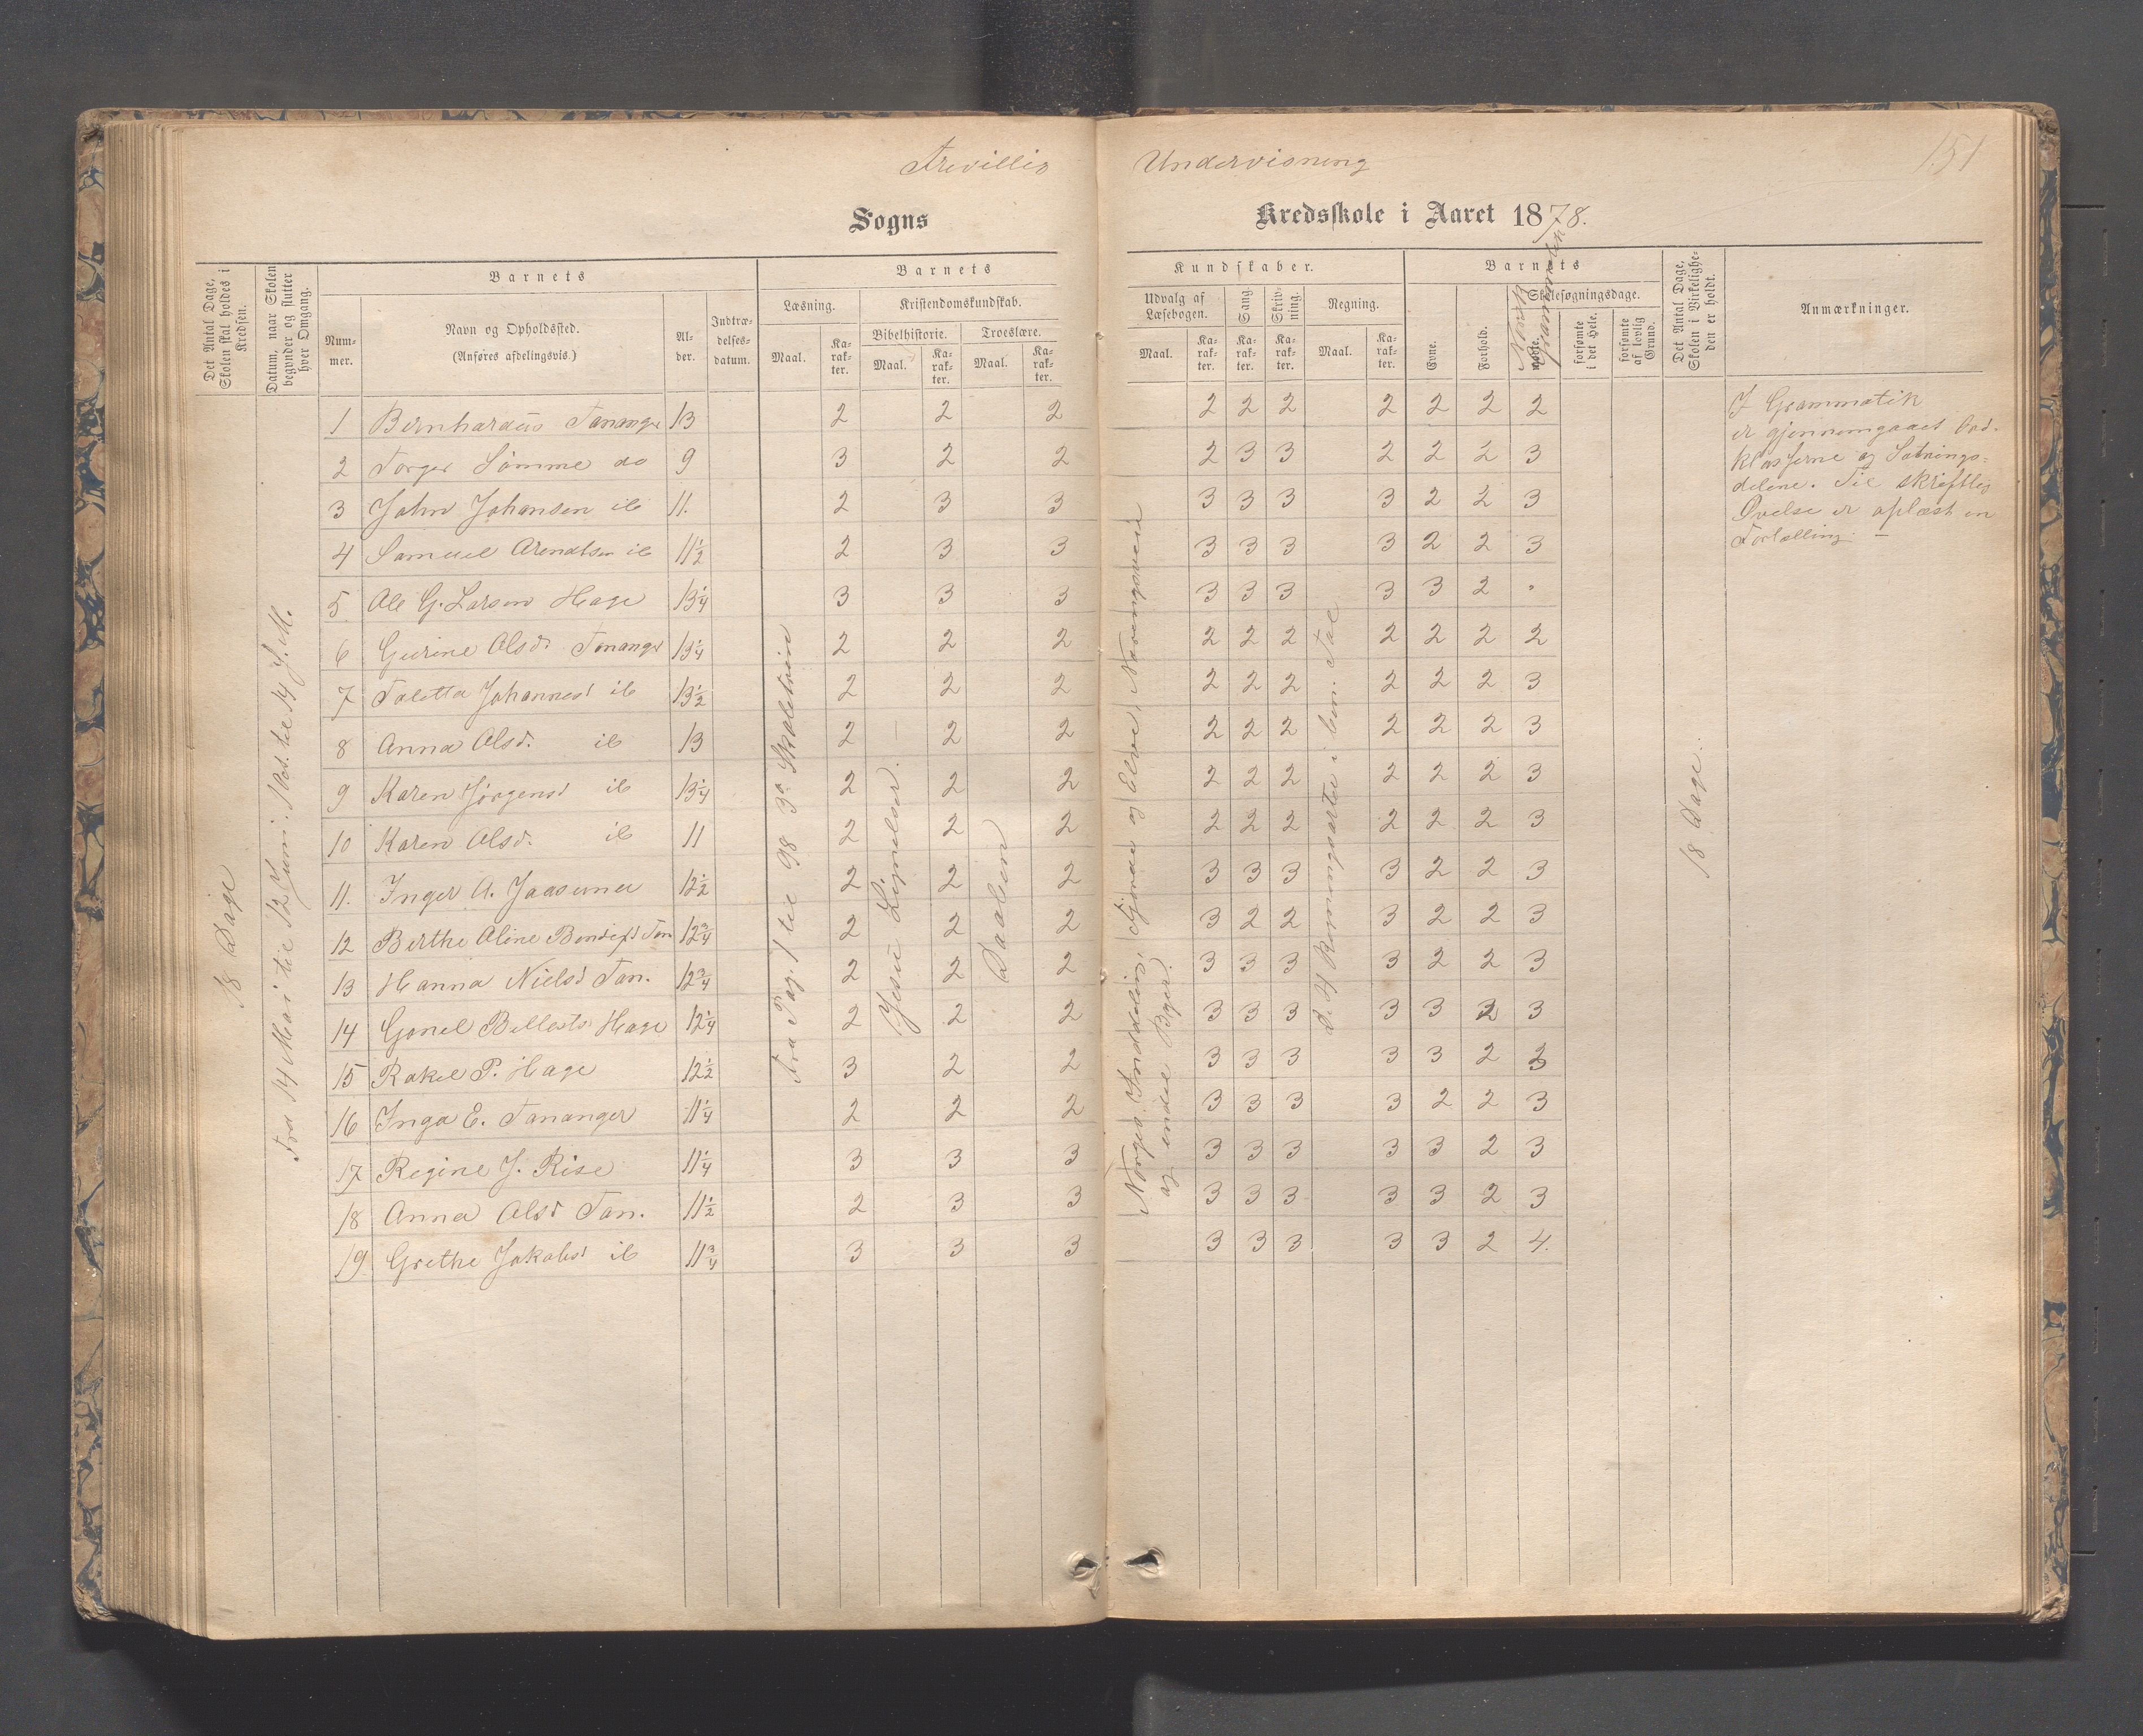 Frivillig Undervisning
151
Sogns Kredsskole i Aaret 1878.
Det Antal Dage, Skolen skal holdes i Kredsen.
Datum, naar Skolen begynder og slutter hver Omgang.
Barnets
Num-mer.
Navn og Opholdssted.
(Anføres afdelingsvis.)
Al-der.
Indtræ-delses-datum.
Barnets
Læsning.
Maal.
Ka-rak-ter.
Kristendomskundskab.
Bibelhistorie.
Maal.
Ka-rak-ter.
Troeslære.
Maal.
Ka-rak-ter.
Kundskaber.
Udvalg af Læsebogen.
Maal.
Ka-rak-ter.
Sang.
Ka-rak-ter.
Skriv-ning.
Ka-rak-ter.
Regning.
Maal.
Ka-rak-ter.
Barnets
Evne.
Forhold.
Skolesøgningsdage.
mødte.
Norsk Grammatik
forsømte i det Hele.
forsømte af lovlig Grund.
Det Antal Dage, Skolen i Virkelighe-den er holdt.
Anmærkninger.
18 Dage
Fra 14 Mai til 12 Juni. 1 Oct. til 14 J. M.
Fra Pag. 1 til 98 3die Skoletrin
Jesu Lignelser.
Daaben
Norges Inddeling, Fjorde og Elve, Næringsveie
og endel Byer.
De 4 Regningsarter i ben. Tal
18 Dage.
1 Bernhardus Tananger 13 2 2 2 2 2 2 2 2 2 2
2 Torger Sømme do 9 3 2 2 2 3 3 2 2 2 3
3 John Johansen ib 11. 2 3 3 3 3 3 3 2 2 3
4 Samuel Arendtsen ib 11½ 2 3 3 3 3 3 3 2 2 3
5 Ole G. Larsen Hage 13¼ 3 3 3 3 3 3 3 3 2 "
6 Gurine Olsd. Tananger 13¼ 2 2 2 2 2 2 2 2 2 2
7 Taletta Johannesd ib 13½ 2 2 2 2 2 2 2 2 2 3
8 Anna Olsd. ib 13 2 2 2 2 2 2 2 2 2 3
9 Karen Jørgensd ib 13¼ 2 2 2 2 2 2 2 2 2 3
10 Karen Olsd. ib 11 2 2 2 2 2 2 2 2 2 3
11. Inger A. Jaasund 12½ 2 2 2 3 3 3 3 2 2 3
12 Berthe Oline Bendixd Tan 12¾ 2 2 2 3 2 2 3 2 2 3
13 Hanna Nielsd Tan. 12¾ 2 2 2 3 3 3 3 2 2 3
14 Gonel Hage 12¼ 2 2 2 3 3 3 3 3 2 3
15 Rakel P. Hage 12½ 3 2 2 3 3 3 3 3 2 3
16 Inga E. Tananger 11¼ 2 2 2 3 3 3 3 2 2 3
17 Regine J. Rise 11¼ 3 3 3 3 3 3 3 3 2 3
18 Anna Olsd Tan. 11½ 2 3 3 3 3 3 3 3 2 3
19 Grethe Jakobsd ib 11¾ 3 3 3 3 3 3 3 3 2 4.
I Grammatik
er gjennemgaaet Ord-
klasserne og Sætnings-
delene. Til skriftlig
Øvelse er oplæst en
Fortælling. —